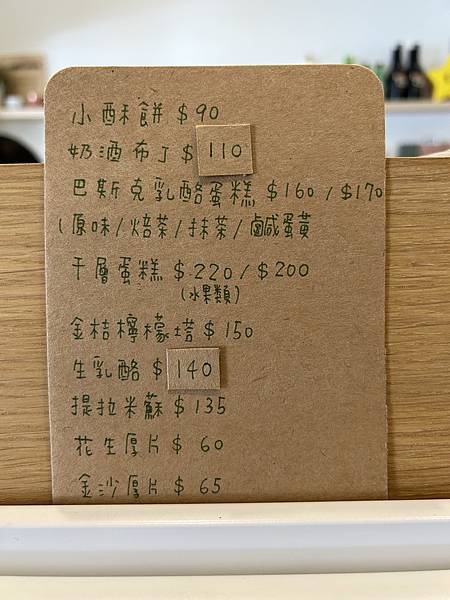 小酥餅 $90
奶酒布丁 $ 110
巴斯克乳酪蛋糕 $160 / $170
(原味/焙茶/抹茶/鹹蛋黃
千層蛋糕 $220/$200
(水果類)
金桔檸檬塔 $150
生乳酪 $ 140
提拉米蘇 $135
花生厚片 $ 60
金沙厚片 $ 65